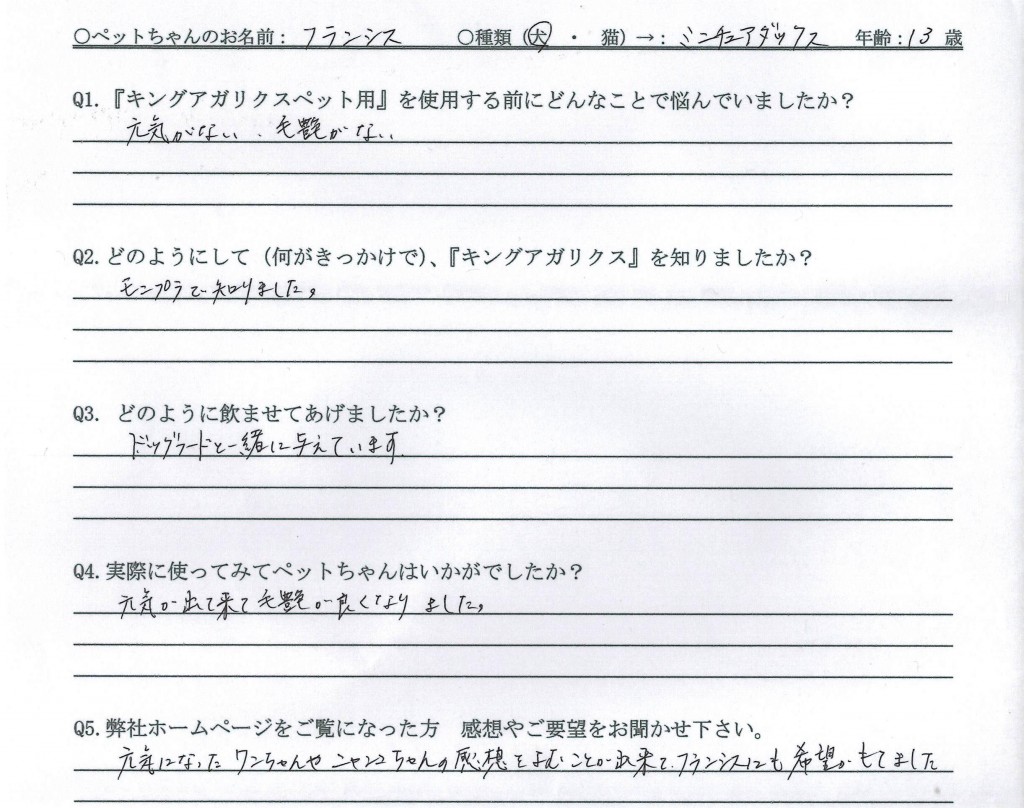 ○ペットちゃんのお名前： フランシス ○種類（犬 ・ 猫）→： ミニチュアダックス 年齢：13 歳
Q1.『キングアガリクスペット用』を使用する前にどんなことで悩んでいましたか？
元気がない、毛艶がない、
Q2.どのようにして（何がきっかけで）、『キングアガリクス』を知りましたか？
モンプラで知りました。
Q3. どのように飲ませてあげましたか？
ドッグフードと一緒に与えています
Q4.実際に使ってみてペットちゃんはいかがでしたか？
元気が出て来て毛艶が良くなりました。
Q5.弊社ホームページをご覧になった方 感想やご要望をお聞かせ下さい。
元気になったワンちゃんやニャンコちゃんの感想をよむことが出来て、フランシスにも希望がもてました